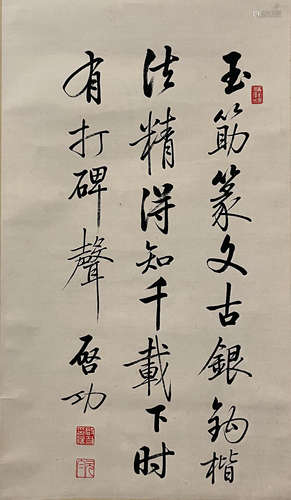 玉筯篆文古銀鈎楷
法精得知千載下时
有打碑聲
啓功